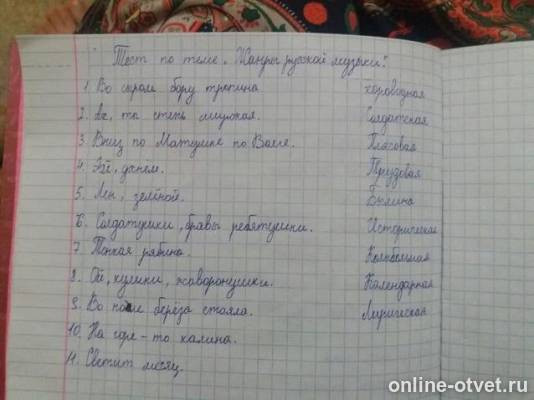 Тест по теме „Жанры русской музыки".
1. Во сыром бору тропина хороводная
2. Ах, ты степь широкая. Солдатская
3. Вниз по Матушке по Волге. Плясовая
4. Эй, ухнем. Трудовая
5. Лён, зелёной. Былина
6. Солдатушки, бравы ребятушки. Историческая
7. Тонкая рябина. Колыбельная
8. Ой, кулики, жаворонушки. Календарная
9. Во поле берёза стояла. Лирическая
10. На горе-то калина.
11. Светит месяц.
online-otvet.ru